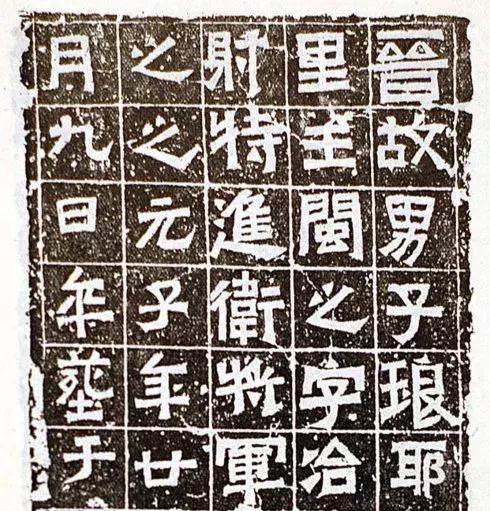 晉故男子琅耶
里王閩之字冶
射特進衛將軍
之之元子年廿
月九日卒葬于